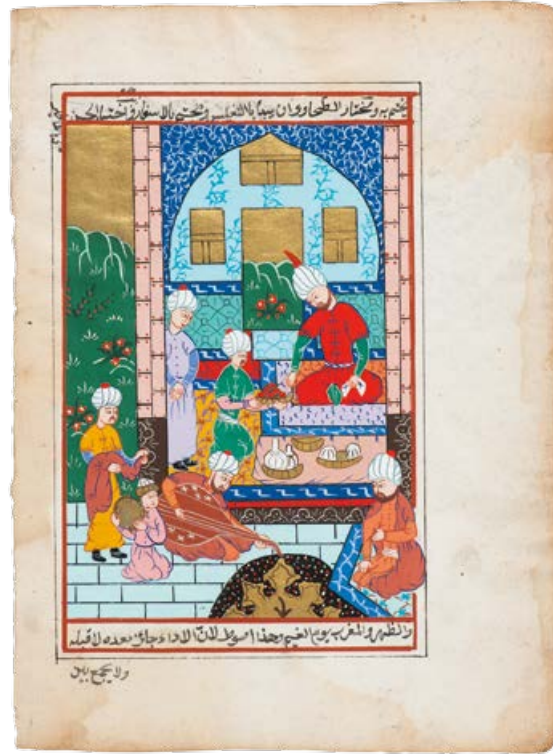 يختم به ومختار الطحاوى ان يبدا بالتغليس ويختم بالاسفار و
والظهر والمغرب يوم الغيم وهذا احوط لان الاداء جائز بعده لا قبله
ولا يجمع بين